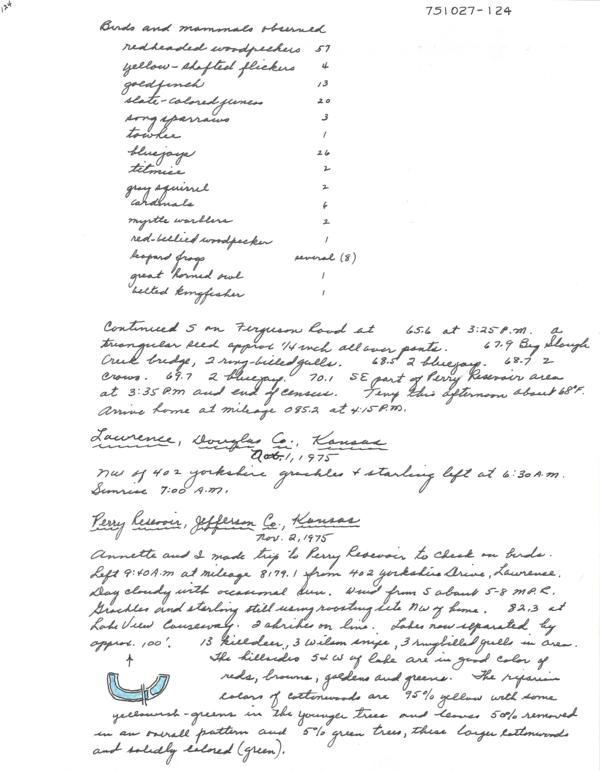 124
751027-124
Birds and mammals observed
redheaded woodpeckers 57
yellow-shafted flickers 4
goldfinch 13
slate-colored juncos 20
song sparrows 3
towhee 1
bluejays 26
titmice 2
gray squirrel 2
cardinals 6
myrtle warblers 2
red-bellied woodpecker 1
leopard frogs several (8)
great horned owl 1
belted kingfisher 1
Continued S on Ferguson Road at 65.6 at 3:25 P.M. a
triangular seed approx 1/4 inch all over pants. 67.9 Big Slough
Creek bridge, 2 ring-billed gulls. 68.5 2 bluejays. 68.7 2
crows. 69.7 2 bluejays. 70.1 SE part of Perry Reservoir area
at 3:35 P.M and end of census. Temp this afternoon about 68°F.
Arrive home at mileage 085.2 at 4:15 P.M.
Lawrence, Douglas Co., Kansas
1, 1975
NW of 402 yorkshire grackles + starling left at 6:30 A.M.
Sunrise 7:00 A.M.
Perry Resevoir, Jefferson Co., Kansas
Nov. 2, 1975
Annette and I made trip to Perry Resevoir to check on birds.
Left 9:40 A.M at mileage 8179.1 from 402 Yorkshire Drive, Lawrence.
Day cloudy with occasional sun. Wind from S about 5-8 M.P.R.
Grackles and starling still using roosting site NW of home. 82.3 at
Lake View Causeway. 2 shrikes on line. Lakes now separated by
approx. 100'. 13 killdeer, 3 Wilson snipe, 3 ringbilled gulls in area.
The hillsides S & W of lake are in good color of
reds, browns, goldens and greens. The riparian
colors of cottonwoods are 95% yellow with some
yellowish-greens in the younger trees and leaves 50% removed
in an overall pattern and 5% green trees, these larger cottonwoods
and solidly colored (green).